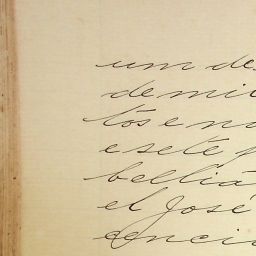 um de
de mil
tos e no
e sete
belliã
el José
cencia